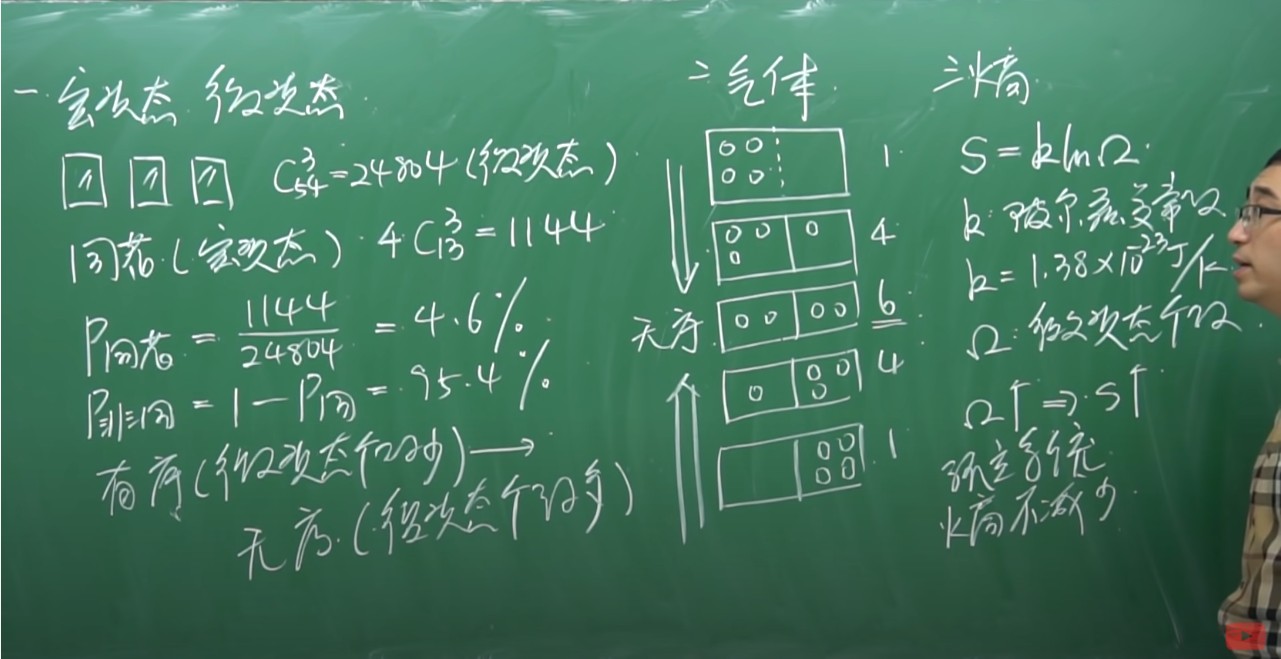 一.宏观状态 微观状态
C³₅₄=24804(微观状态)
同花(宏观状态) 4C³₁₃=1144
P同花 = 1144/24804 = 4.6%
P非同 = 1-P同 = 95.4%
有序(微观状态个数少)→
无序(微观状态个数多)
二气体
1
4
无序 6
4
1
三熵
S=klnΩ
k:玻尔兹曼常数
k=1.38×10⁻²³J/K
Ω:微观状态个数
Ω↑⇒S↑
孤立系统
熵不减少